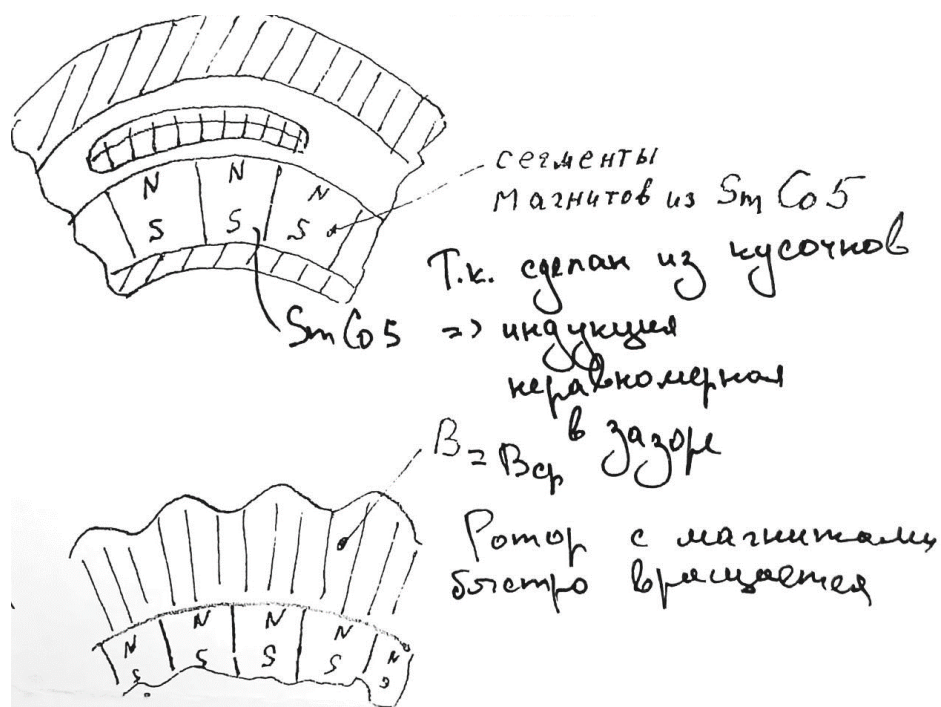 N N N
S S S
сегменты
магнитов из SmCo5
Т.к. сделан из кусочков
SmCo5 => индукция
неравномерная
в зазоре
B = Bср
Ротор с магнитами
быстро вращается
N N N N N
S S S S S